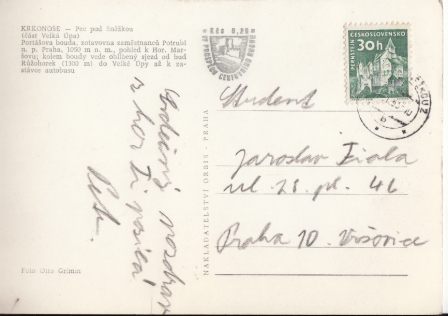 KRKONOŠE – Pec pod Sněžkou
(část Velká Úpa)
Portášova bouda, zotavovna zaměstnanců Potrubí
n. p. Praha, 1050 m n. m., pohled k Hor. Mar-
šovu; kolem boudy vede oblíbený sjezd od bud
Růžohorek (1300 m) do Velké Úpy až k za-
stávce autobusu
Kčs 0,20
ČESKOSLOVENSKO
30h
PERNŠTEJN
Student
Jaroslav Fiala
ul. 28. pl. 46
Praha 10. Vršovice
Srdečný pozdrav
z hor Ti posílá
NAKLADATELSTVÍ ORBIS - PRAHA
Foto Otto Grimm